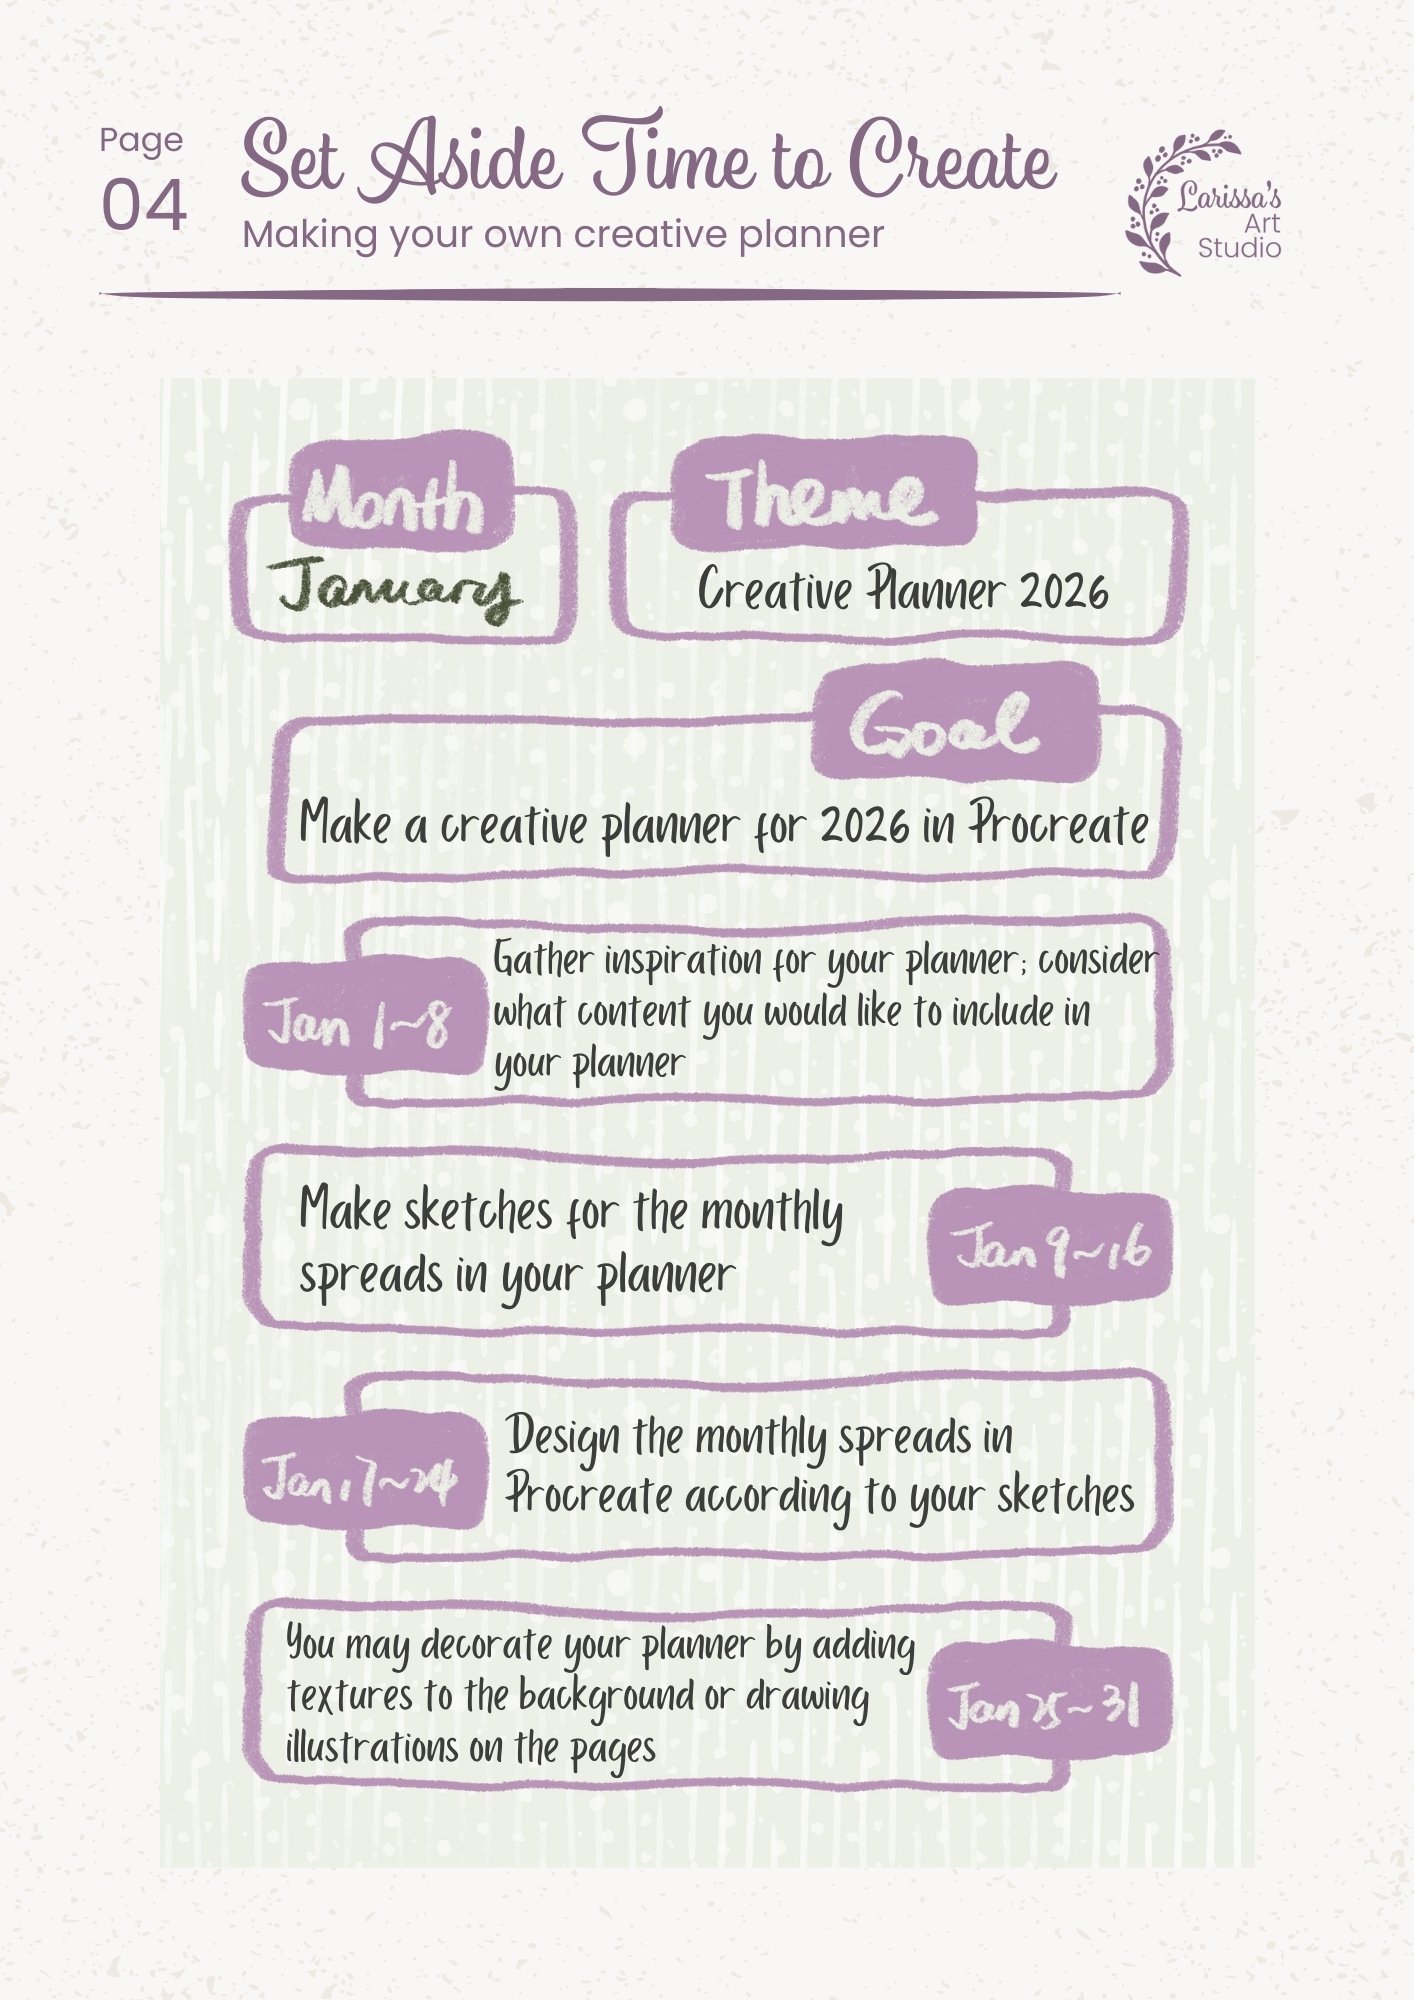 Page
04
Set Aside Time to Create
Making your own creative planner
Larissa's
Art
Studio
Month
January
Theme
Creative Planner 2026
Goal
Make a creative planner for 2026 in Procreate
Jan 1~8
Gather inspiration for your planner; consider
what content you would like to include in
your planner
Make sketches for the monthly
spreads in your planner
Jan 9~16
Jan 17~24
Design the monthly spreads in
Procreate according to your sketches
You may decorate your planner by adding
textures to the background or drawing
illustrations on the pages
Jan 25~31